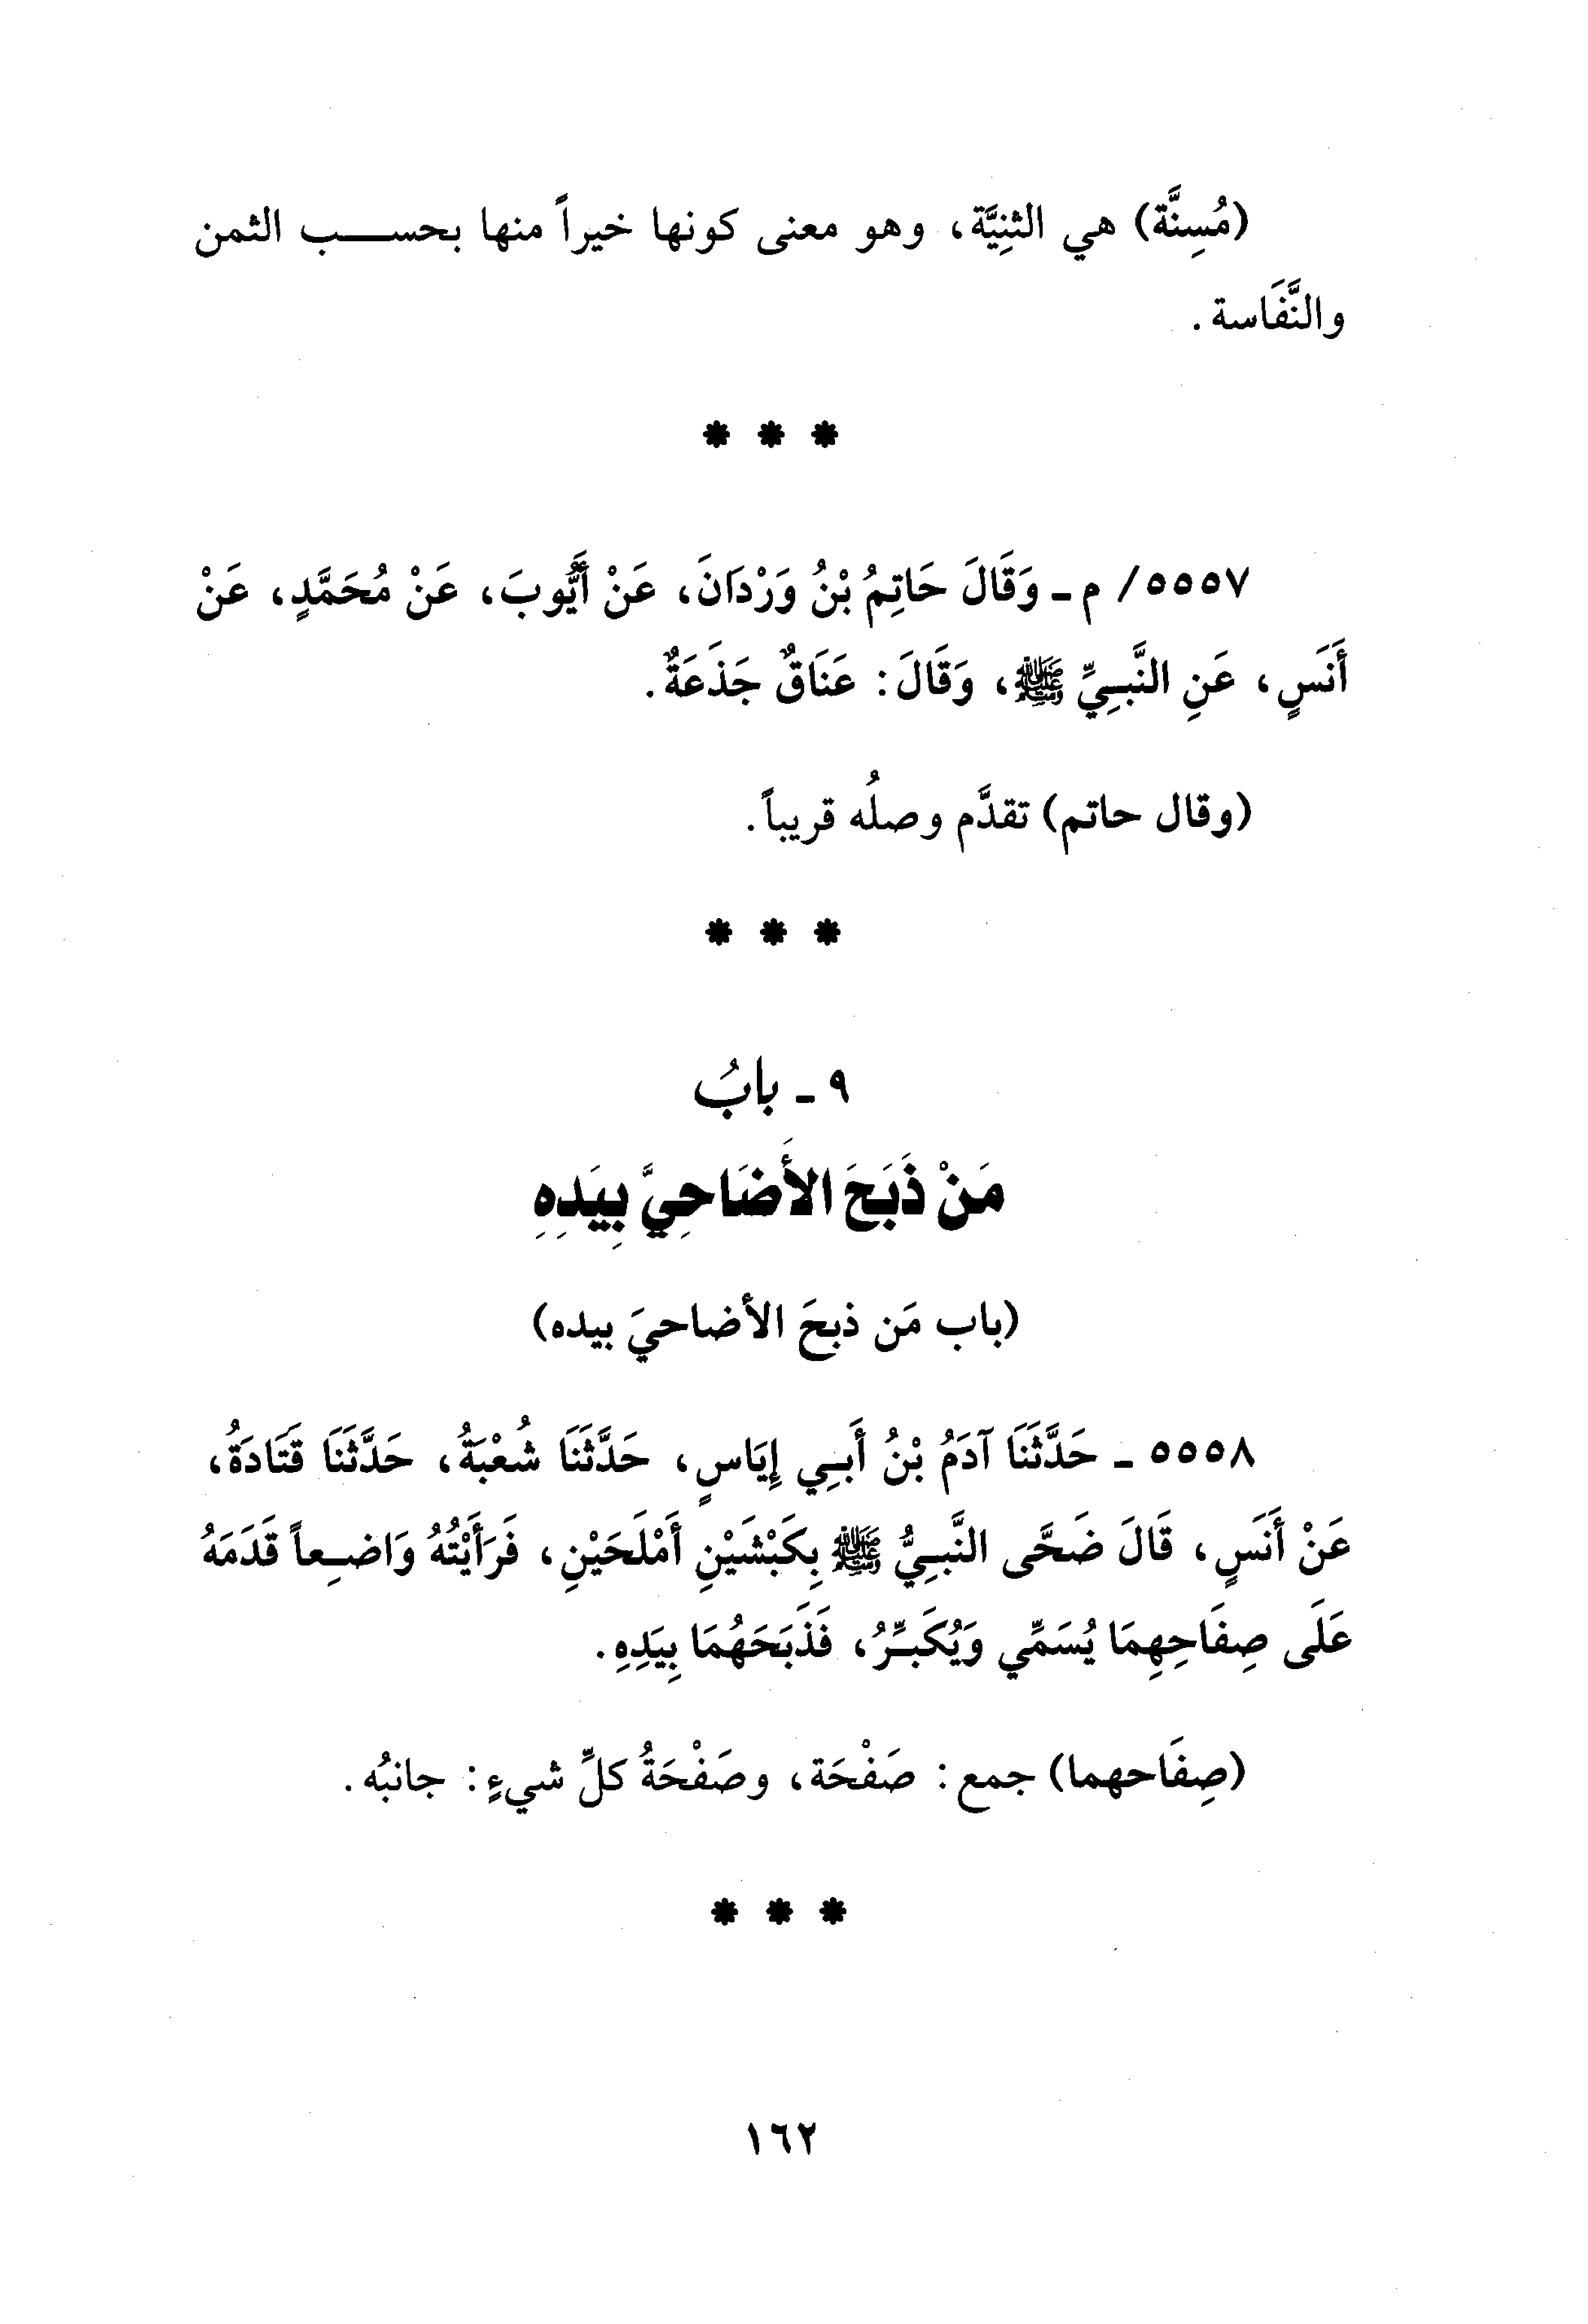 (مُسِنَّة) هي الثنِيَّة، وهو معنى كونها خيراً منها بحسب الثمن
والنَّفَاسة.
* * *
٥٥٥٧/ م - وَقَالَ حَاتِمُ بْنُ وَرْدَانَ، عَنْ أَيُّوبَ، عَنْ مُحَمَّدٍ، عَنْ
أَنَسٍ، عَنِ النَّبِيِّ ﷺ، وَقَالَ: عَنَاقٌ جَذَعَةٌ.
(وقال حاتم) تقدَّم وصلُه قريباً.
* * *
٩ - بابُ
مَنْ ذَبَحَ الأَضَاحِيَّ بِيَدِهِ
(باب مَن ذبحَ الأضاحيَ بيده)
٥٥٥٨ - حَدَّثَنَا آدَمُ بْنُ أَبِي إِيَاسٍ، حَدَّثَنَا شُعْبَةُ، حَدَّثَنَا قَتَادَةُ،
عَنْ أَنَسٍ، قَالَ ضَحَّى النَّبِيُّ ﷺ بِكَبْشَيْنِ أَمْلَحَيْنِ، فَرَأَيْتُهُ وَاضِعاً قَدَمَهُ
عَلَى صِفَاحِهِمَا يُسَمِّي وَيُكَبِّرُ، فَذَبَحَهُمَا بِيَدِهِ.
(صِفَاحهما) جمع: صَفْحَة، وصَفْحَةُ كلِّ شيءٍ: جانبُه.
* * *
١٦٢